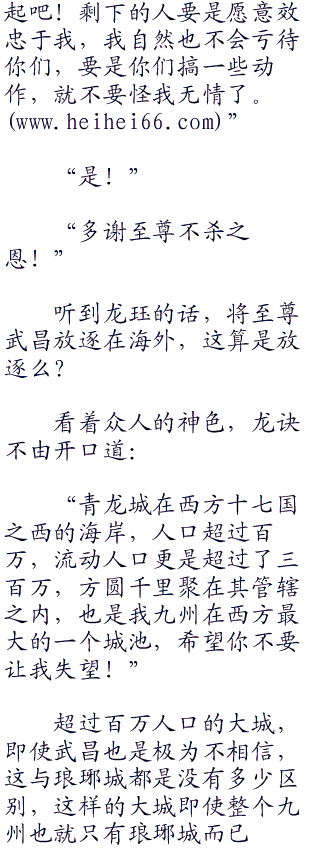 起吧！剩下的人要是愿意效
忠于我，我自然也不会亏待
你们，要是你们搞一些动
作，就不要怪我无情了。
(www.heihei66.com)”
“是！”
“多谢至尊不杀之
恩！”
听到龙珏的话，将至尊
武昌放逐在海外，这算是放
逐么？
看着众人的神色，龙诀
不由开口道：
“青龙城在西方十七国
之西的海岸，人口超过百
万，流动人口更是超过了三
百万，方圆千里聚在其管辖
之内，也是我九州在西方最
大的一个城池，希望你不要
让我失望！”
超过百万人口的大城，
即使武昌也是极为不相信，
这与琅琊城都是没有多少区
别，这样的大城即使整个九
州也就只有琅琊城而已